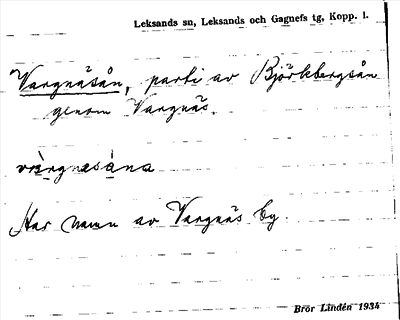 Leksands sn, Leksands och Gagnefs tg, Kopp. l.
Vargnäsån, parti av Björkbergsån
genom Vargnäs.
vàrgnasàna
Har namn av Vargnäs by.
Bror Lindén 1934